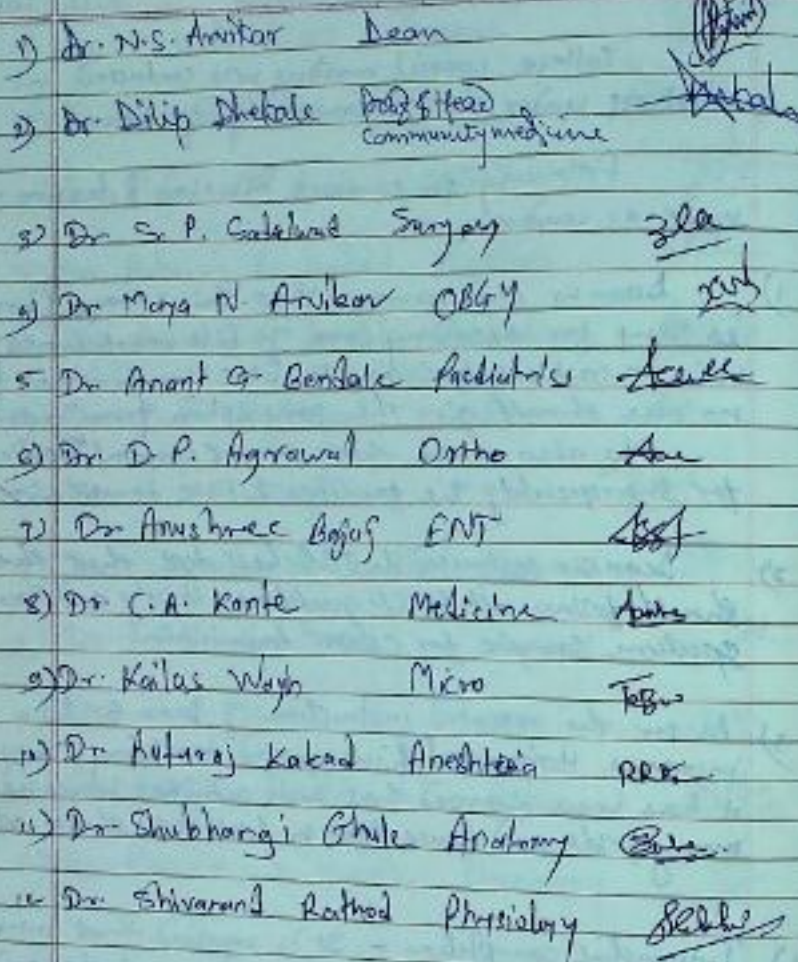 1) Dr. N.S. Arvikar Dean
2) Dr. Dilip Dhekale Prof & Head
Community medicine
3) Dr S. P. Surgery
4) Dr Maya N Arvikar OBGY
5 Dr Anant G Bendale Paediatrics
6) Dr. D. P. Agrawal Ortho
7) Dr Anushree Bajaj ENT
8) Dr. C.A. Kante Medicine
9) Dr. Kailas Wagh Micro
10) Dr Ruturaj Kakad Aneshtesia RRK
11) Dr. Shubhangi Ghule Anatomy
12 Dr. Shivanand Rathod Physiology